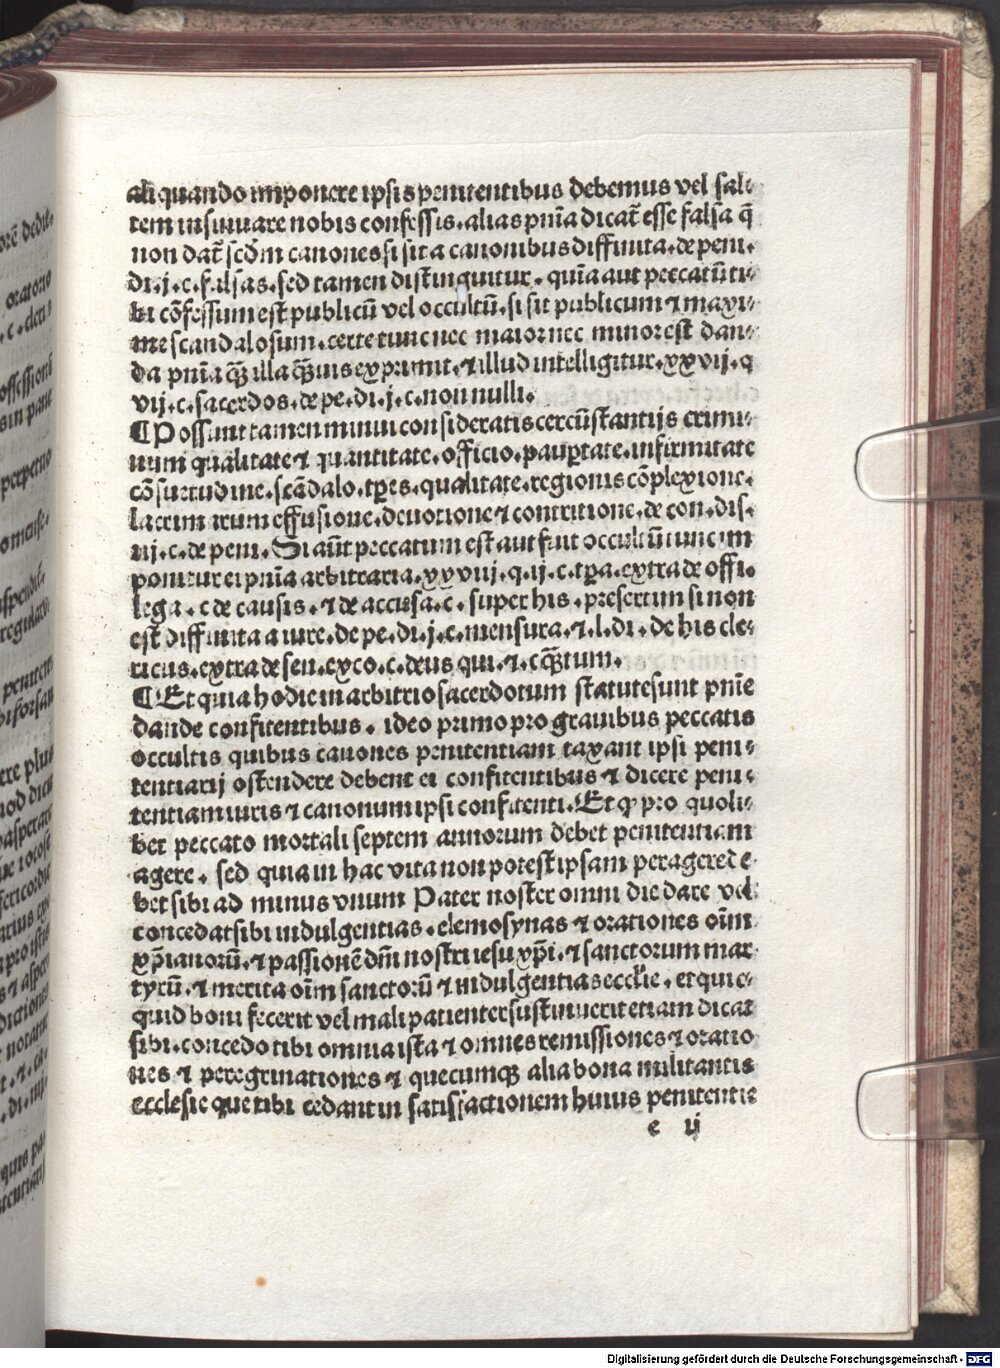 ali quando imponere ipsis penitentibus debemus vel sal⸗
tem insinuare nobis confessis. alias pnīa dicat̄ esse falsa q̄
non dat̄ scd̄m canones si sit a canonibus diffinita. de peni.
di. j. c. falsas. sed tamen distinguitur. quia aut peccatū ti⸗
bi cōfessum est publicū vel occultū. si sit publicum ⁊ maxi⸗
me scandalosum. certe tunc nec maior nec minor est dan⸗
da pnīa
vij. c. sacerdos. de pe. di. j. c. non nulli.
¶ Possunt tamen minui consideratis circūstantijs crimi⸗
num qualitate ⁊ quantitate. officio. paup̄tate. infirmitate
cōsuetudine. scādalo. tp̄es. qualitate. regionis cōplexione.
lacrim arum effusione. deuotione ⁊ contritione. de con. dis.
iij. c. de peni. Si aūt peccatum est aut fuit occultū tunc im
ponitur ei pnīa arbitraria. xxvij. q. ij. c. tp̄a. extra de offi.
lega. c de causis. ⁊ de accusa. c. super his. presertim si non
est diffinita a iure. de pe. di. j. c. mensura. ⁊. l. di. de his cle⸗
ricus. extra de sen. exco. c. deus qui. ⁊. c. q̄stum.
¶ Et quia hodie in arbitrio sacerdotum statute sunt pnīe
dande confitentibus. ideo primo pro grauibus peccatis
occultis quibus canones penitentiam taxant ipsi peni⸗
tentiarij ostendere debent ei confitentibus ⁊ dicere peni⸗
tentiam iuris ⁊ canonum ipsi confitenti. Et ꝙ pro quoli⸗
bet peccato mortali septem annorum debet penitentiam
agere. sed quia in hac vita non potest ipsam peragere de
bet sibi ad minus vnum Pater noster omni die dare vel
concedat sibi indulgentias. elemosynas ⁊ orationes oīm
xp̄ianorū. ⁊ passionē dn̄i nostri iesu xp̄i. ⁊ sanctorum mar
tyrū. ⁊ merita oīm sanctorū ⁊ indulgentias eccłie. et quic⸗
quid boni fecerit vel mali patienter sustinuerit etiam dicat
sibi. concedo tibi omnia ista ⁊ omnes remissiones ⁊ oratio
nes ⁊ peregrinationes ⁊ quecumqꝫ alia bona militantis
ecclesie que tibi cedant in satisfactionem huius penitentie
e ij
Digitalisierung gefördert durch die Deutsche Forschungsgemeinschaft - DFG